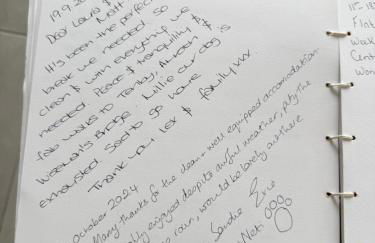 19.9.
Dear Laura &
Matt
It's been the perfect
break we needed, so
clean & with everything we
needed. Peace & tranquility &
fab walks to Tenby, Amroth &
Wiseman's Bridge. Millie our dog is
exhausted. Sad to go home
Thank you Lex & family xxx.
October 2024
Many thanks for the clean & well equipped accommodation.
enjoyed despite awful weather, pity the
rain, would be lovely out there
Sandie Eric
11th
Flat
Week
Cent
Won